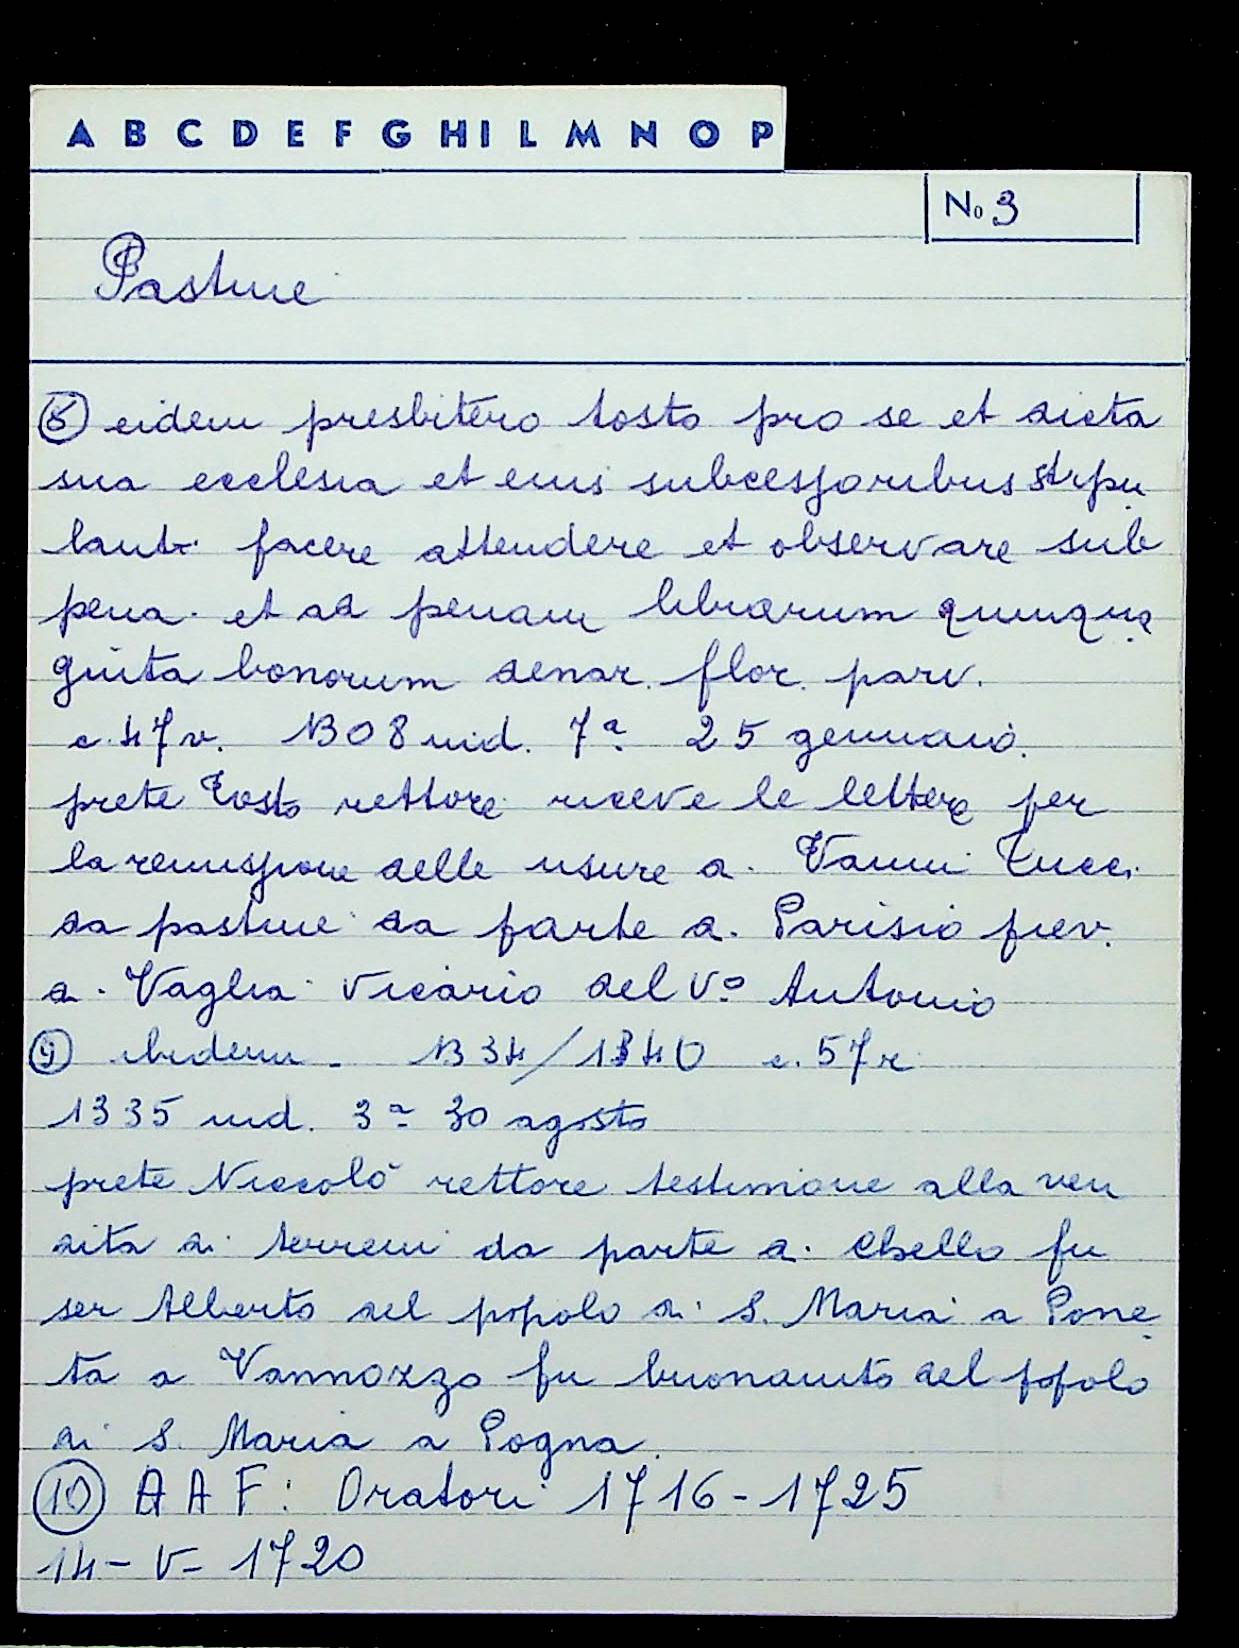 A B C D E F G H I L M N O P
No 3
Pastine
(8) eidem presbitero Tosto pro se et dicta
sua ecclesia et eius subcessoribus stipu
lanti facere attendere et observare sub
pena et ad penam librarum quinqua
ginta bonorum denar. flor. parv.
c. 47v. 1308 ind. 7ª 25 gennaio.
prete Tosto rettore riceve le lettere per
la remissione delle usure di Vanni Tucci
da pastine da parte di Parisio piev.
di Vaglia vicario del Vº Antonio
(9) ibidem - 1334/1340 c. 57r
1335 ind. 3ª 30 agosto
prete Niccolò rettore testimone alla ven
dita di terreni da parte di Chello fu
ser Alberto del popolo di S. Maria a Pone
ta a Vannozzo fu buonaiuto del popolo
di S. Maria a Pogna.
(10) A A F: Oratori 1716-1725
14-V-1720